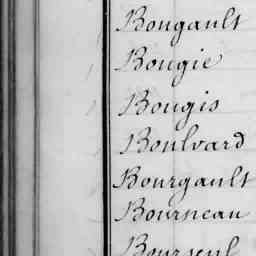 Bougault
Bougie
Bougis
Boulvard
Bourgault
Bourneau
Bourseul